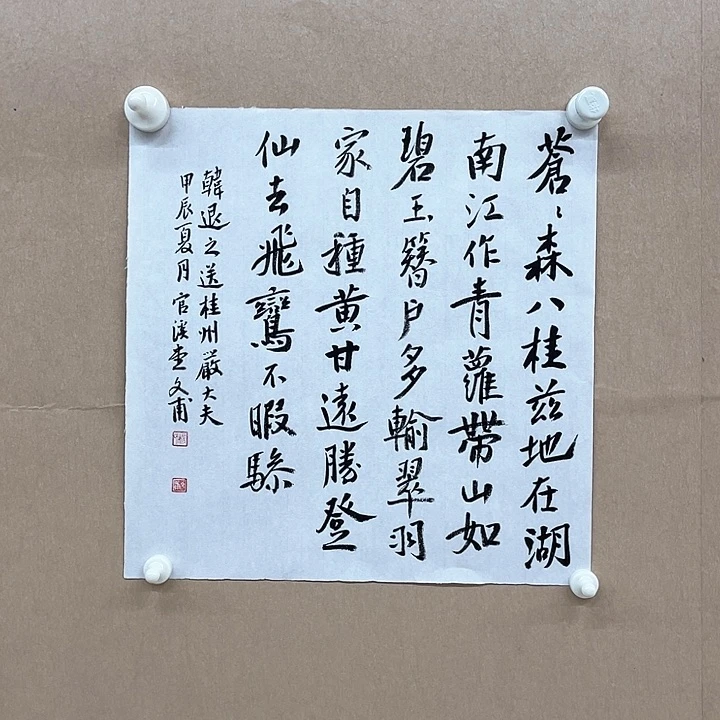 蒼〻森八桂茲地在湖
南江作青蘿帶山如
碧玉簪户多輸翠羽
家自種黄甘遠勝登
仙去飛鸞不暇驂
韓退之送桂州嚴大夫
甲辰夏月官溪文甫